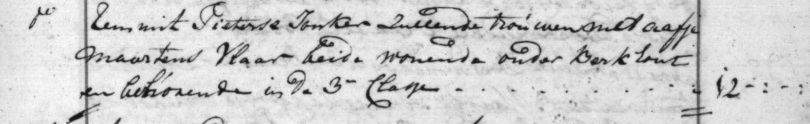 do Eensmit Pieterse Jonker zullende trouwen met aafje
maartens Vlaar beide wonende onder Berkhout
en behorende in de 3e Classe . . . . . . . . . . 12 - : - :